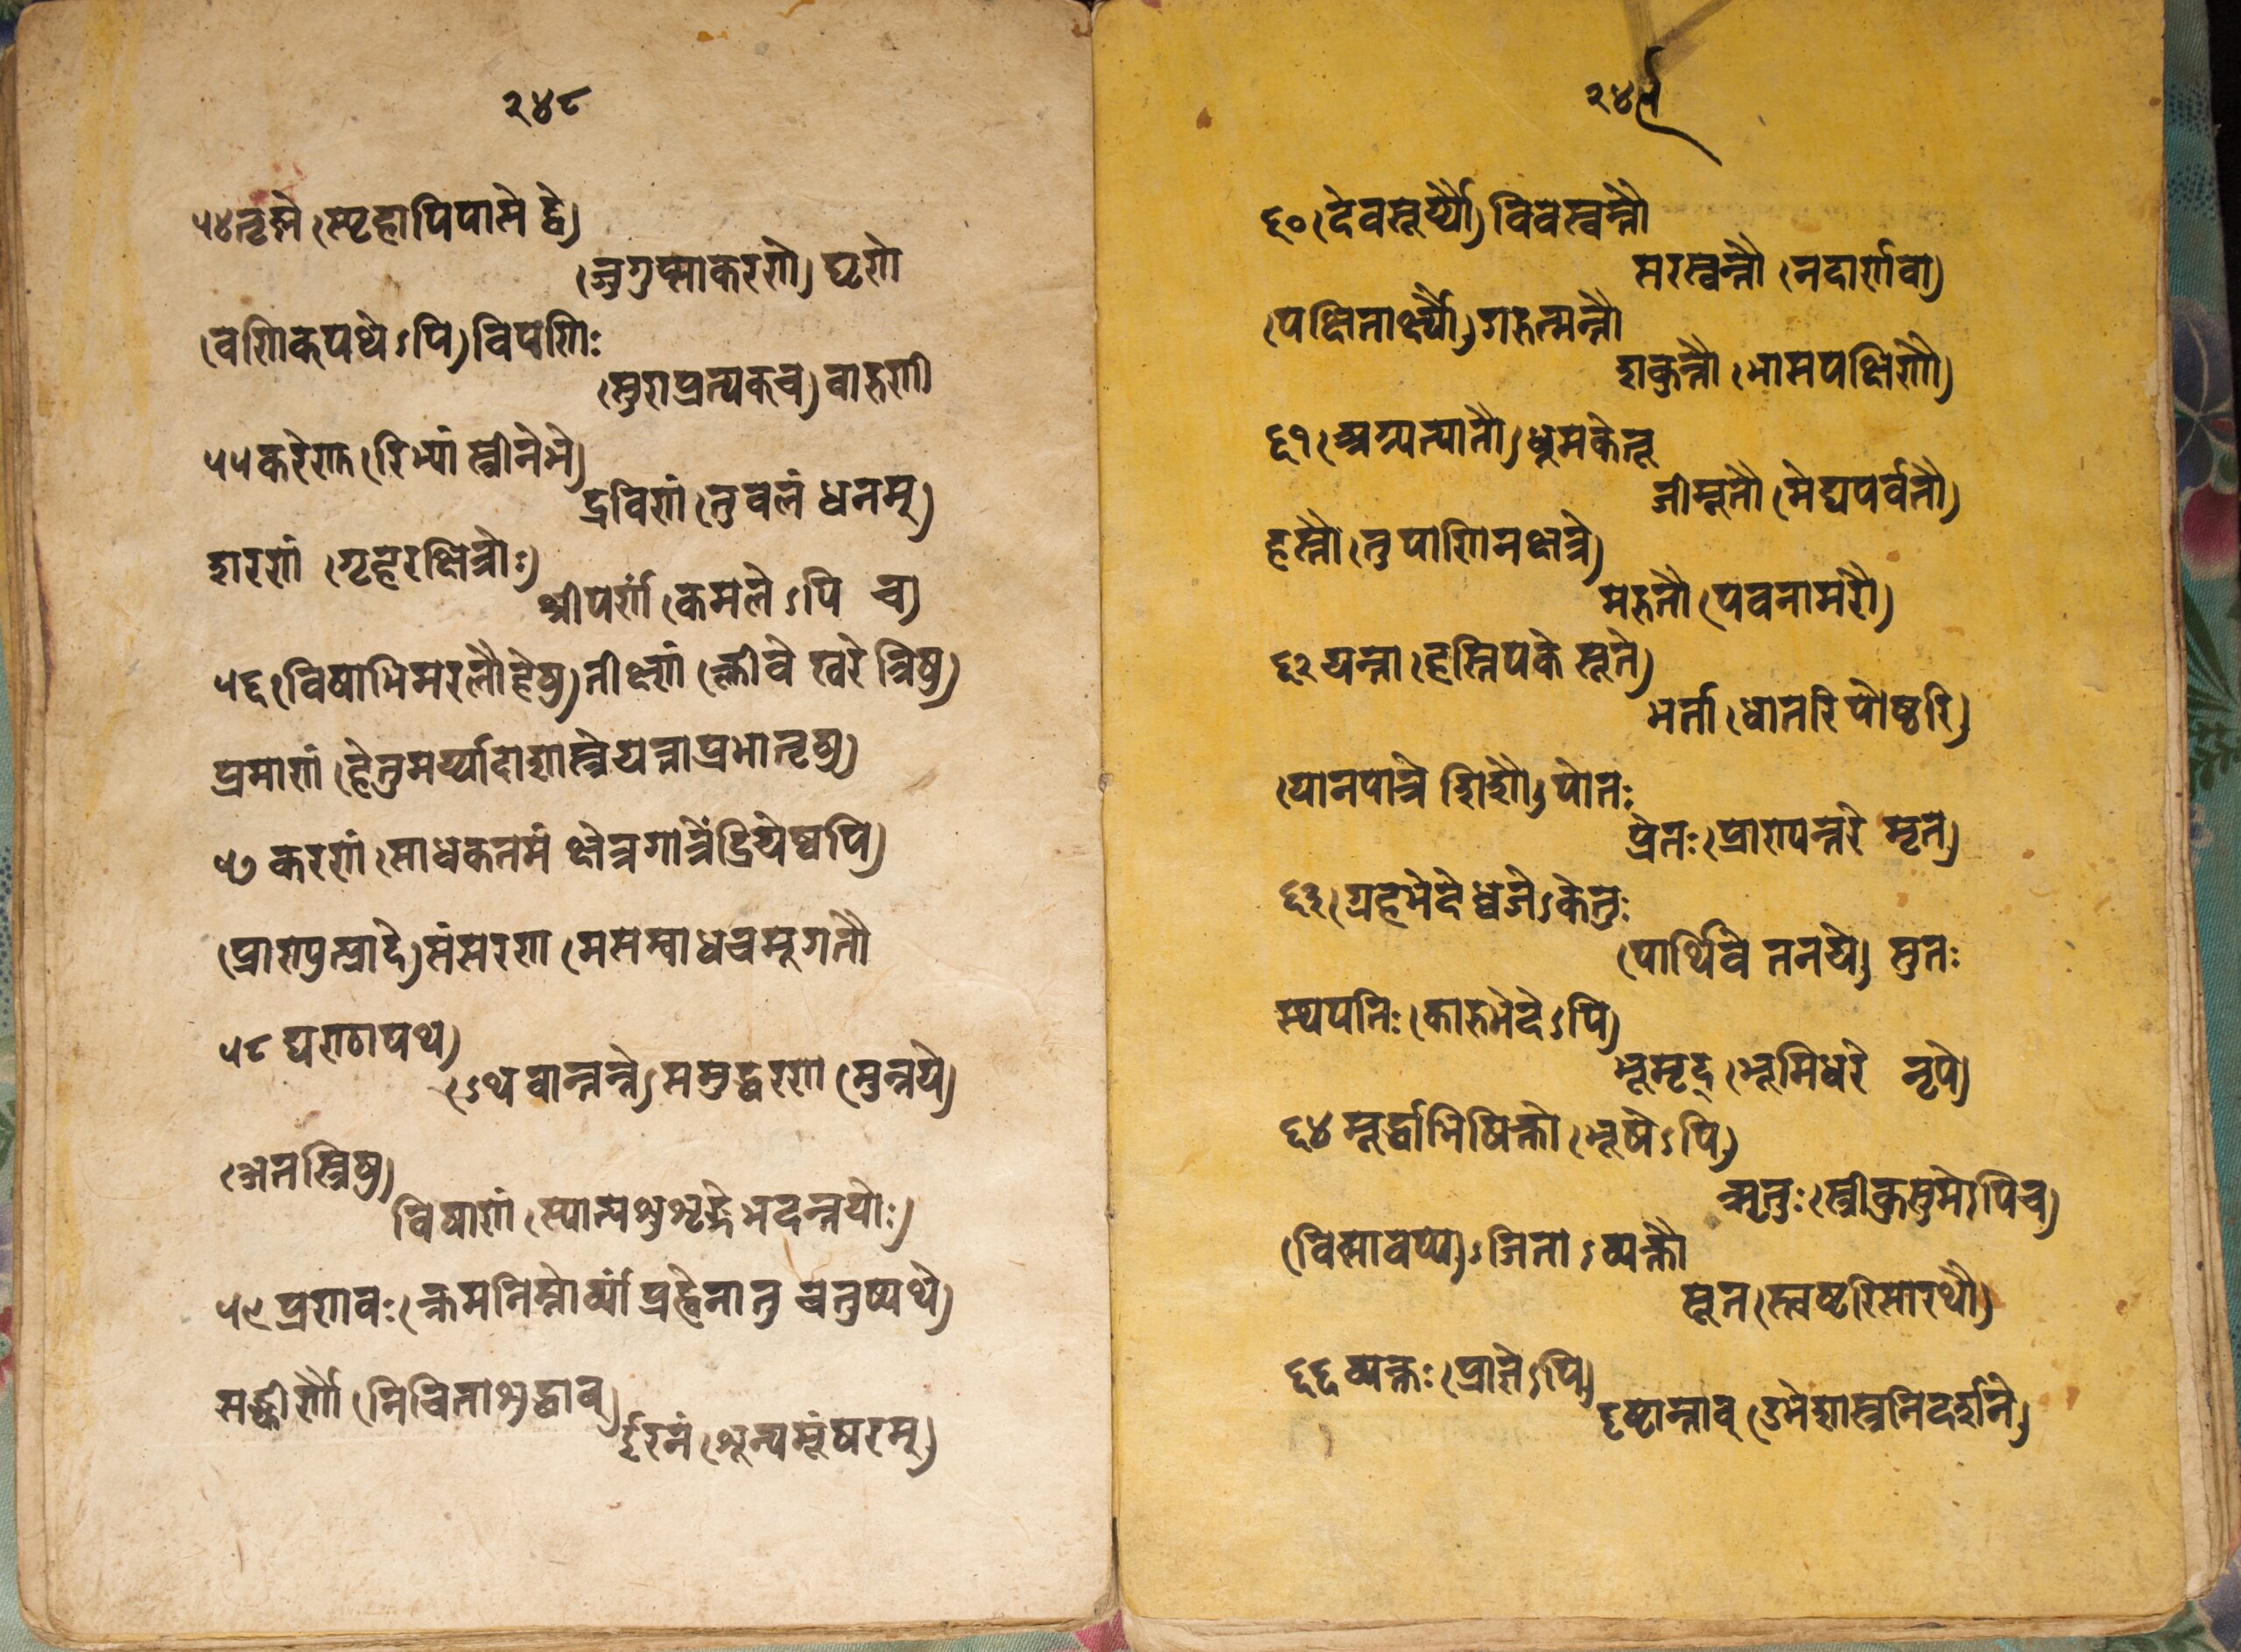 २४८
५४ तृष्णे (स्पृहापिपासे द्वे)
(जुगुप्साकरणे) घृणे
(वणिक्पथेऽपि) विपणिः
(सुराप्रत्यक्च) वारुणी
५५ करेणु (रिभ्यां स्त्रीनेभे)
द्रविणं (तु बलं धनम्)
शरणं (गृहरक्षित्रोः)
श्रीपर्णं (कमलेऽपि च)
५६ (विषाभिमरलौहेषु) तीक्ष्णं (क्लीवे खरे त्रिषु)
प्रमाणं (हेतुमर्य्यादाशास्त्रेयत्ताप्रमातृषु)
५७ करणं (साधकतमं क्षेत्रगात्रेंद्रियेष्वपि)
(प्राण्युत्पादे) संसरण (मसम्बाधचमूगतौ
५८ घण्टापथे)
(ऽथ वान्तान्ने) समुद्धरण (मुन्नये)
(अतस्त्रिषु)
विषाणं (स्यात्पशुशृङ्गेभदन्तयोः)
५९ प्रवणः (क्रमनिम्नोर्व्यां प्रह्वे ना तु चतुष्पथे)
सङ्कीर्णौ (निचिताशुद्धाव्)
ईरिणं (शून्यमूषरम्)
२४९
६० (देवसूर्य्यौ) विवस्वन्तौ
सरस्वन्तौ (नदार्णवौ)
(पक्षितार्क्ष्यौ) गरुत्मन्तौ
शकुन्तौ (भासपक्षिणौ)
६१ (अग्न्युत्पातौ) धूमकेतू
जीमूतौ (मेघपर्वतौ)
हस्तौ (तु पाणिनक्षत्रे)
मरुतौ (पवनामरौ)
६२ यन्ता (हस्तिपके सूते)
भर्ता (धातरि पोष्टरि)
(यानपात्रे शिशौ) पोतः
प्रेतः (प्राण्यन्तरे मृते)
६३ (ग्रहभेदे ध्वजे) केतुः
(पार्थिवे तनये) सुतः
स्थपतिः (कारुभेदेऽपि)
भूभृद् (भूमिधरे नृपे)
६४ मूर्द्धाभिषिक्तो (भूपेऽपि)
ऋतुः (स्त्रीकुसुमेऽपि च)
(विष्णावप्य) ऽजिताऽव्यक्तौ
सूत (स्त्वष्टरि सारथौ)
६६ व्यक्तः (प्राज्ञेऽपि)
दृष्टान्ताव् (उभे शास्त्रनिदर्शने)